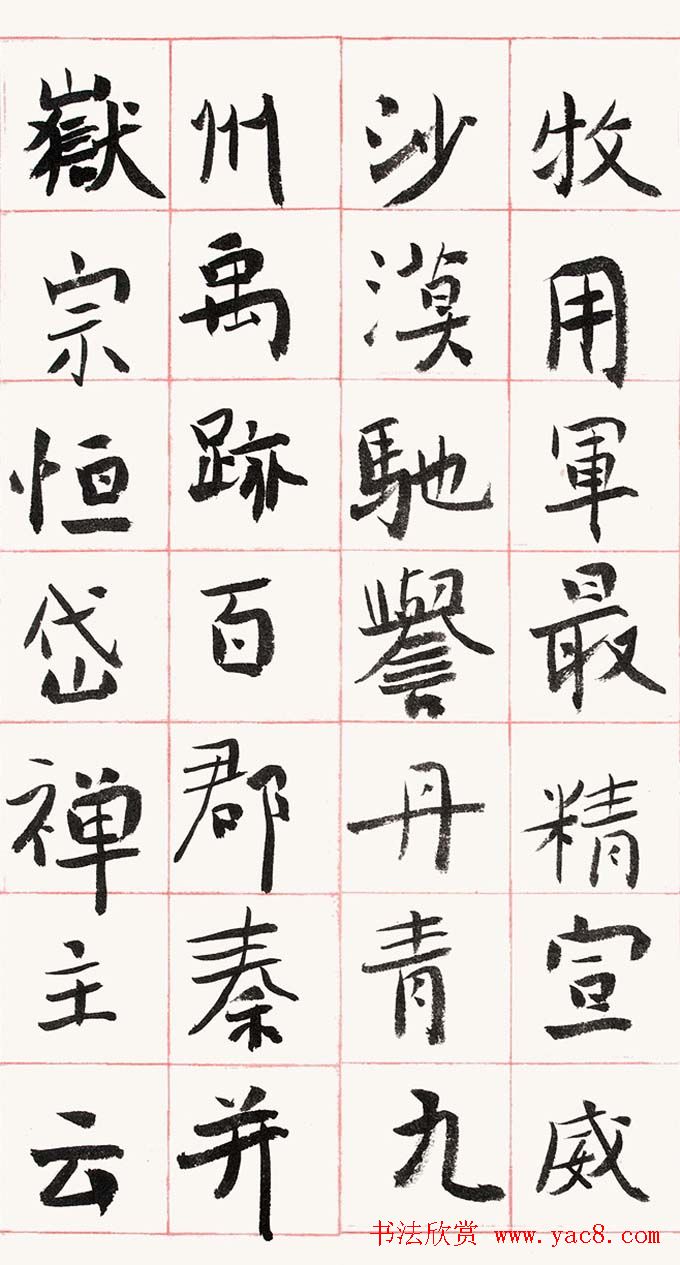 牧用軍最精宣威
沙漠馳譽丹青九
州禹跡百郡秦并
嶽宗恒岱禅主云
书法欣赏 www.yac8.com